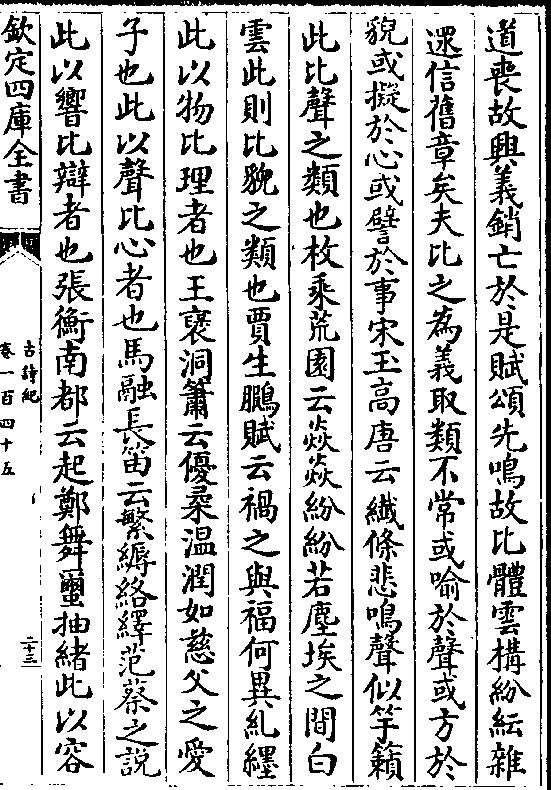 道喪故興義銷亡於是賦頌先鳴故比體雲構紛紜雜
遝信舊章矣夫比之為義取類不常或喻於聲或方於
貌或擬於心或譬於事宋玉高唐云纎條悲鳴聲似竽籟
此比聲之類也枚乘荒園云焱焱紛紛若塵埃之間白
雲此則比貌之類也賈生鵬賦云禍之與福何異糺纆
此以物比理者也王襃洞簫云優柔温潤如慈父之愛
子也此以聲比心者也馬融長笛云繁縟絡繹范蔡之說
此以響比辯者也張衡南都云起鄭舞䖢抽緒此以容
欽定四庫全書
古詩紀
卷一百四十五
二十三